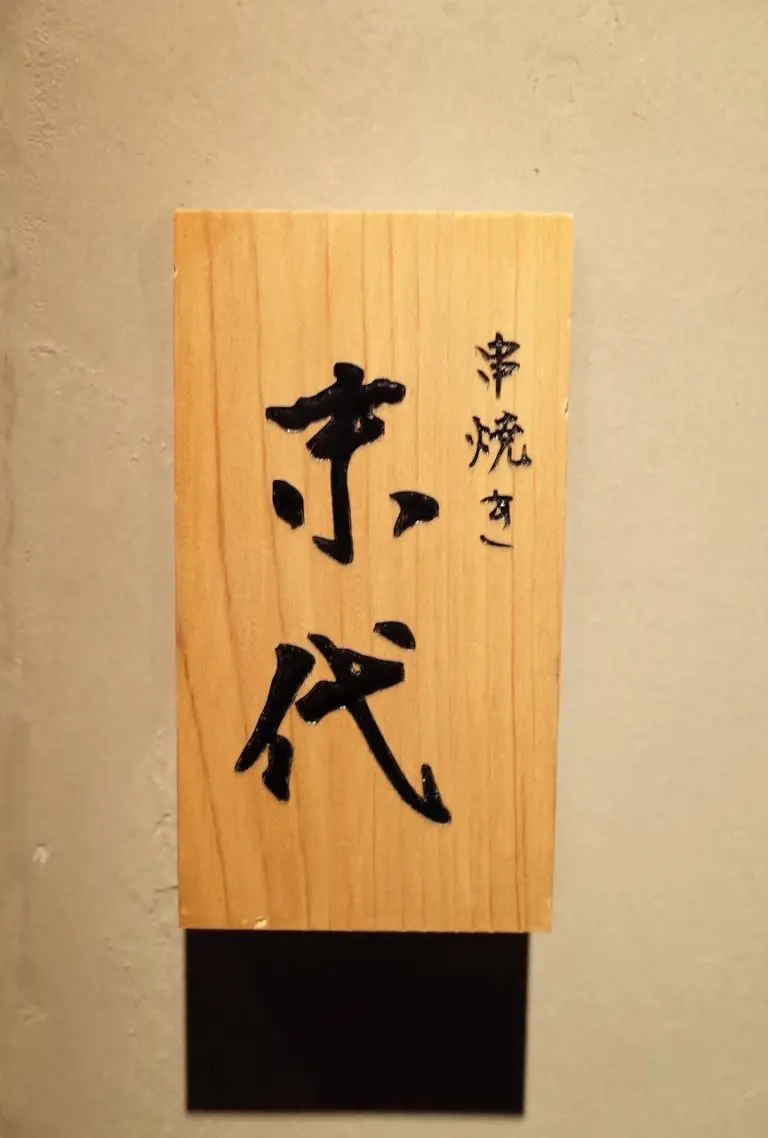 串焼き
末代